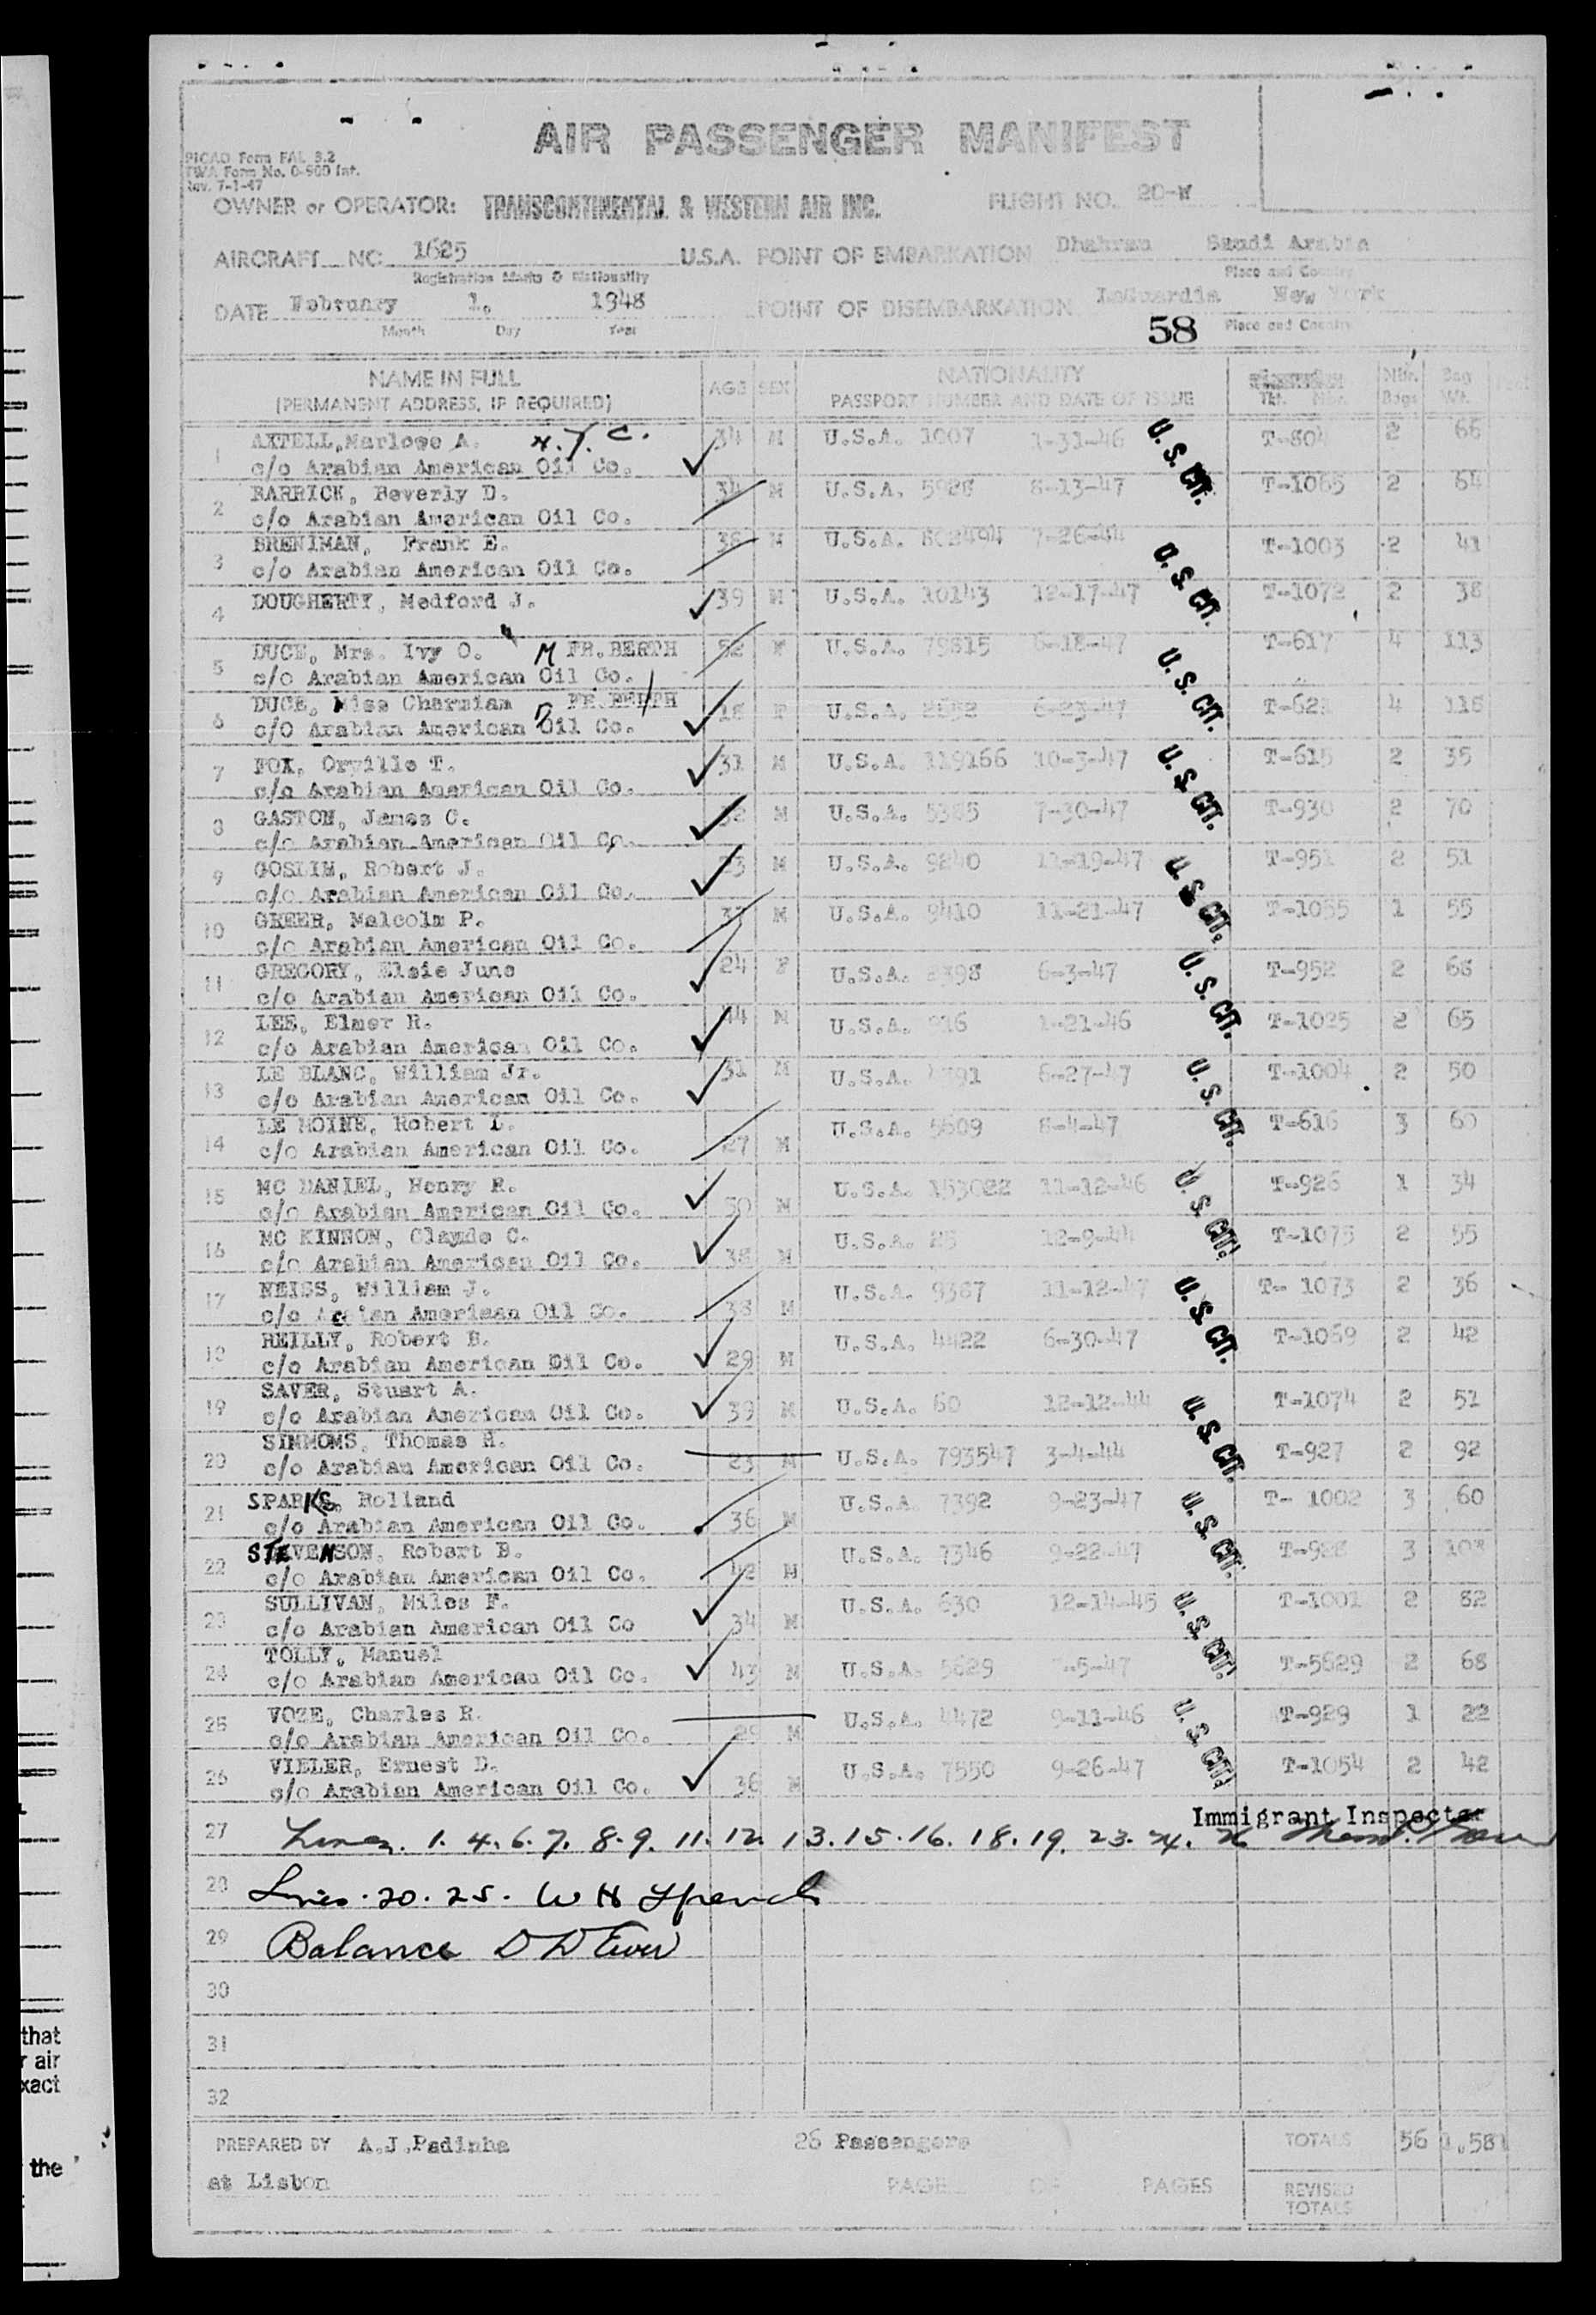 AIR PASSENGER MANIFEST
PICAO Form FAL 3.2
TWA Form No. O-900 Int.
Rev. 7-1-47
OWNER or OPERATOR: TRANSCONTINENTAL & WESTERN AIR INC. FLIGHT NO. 20-W
AIRCRAFT NC 1625 U.S.A. POINT OF EMBARKATION Dhahran Saudi Arabia
Registration Marks & Nationality Place and Country
DATE February 1, 1948 POINT OF DISEMBARKATION LaGuardia New York
Month Day Year 58 Place and Country
NAME IN FULL AGE SEX NATIONALITY Nbr. Bag
(PERMANENT ADDRESS, IF REQUIRED) PASSPORT NUMBER AND DATE OF ISSUE Tkt. Nbr. Bags Wt.
1 AXTELL, A. N.Y.C. 34 M U.S.A. 1007 1-31-46 U.S. CIT. T-804 2 66
c/o Arabian American Oil Co.
2 BARRICK, Beverly D. 34 M U.S.A. 5928 8-13-47 T-1065 2 64
c/o Arabian American Oil Co.
3 BRENIMAN, Frank E. 38 M U.S.A. 802494 7-26-44 U.S. CIT. T-1003 2 41
c/o Arabian American Oil Co.
4 DOUGHERTY, Medford J. 39 M U.S.A. 10143 12-17-47 T-1072 2 38
5 DUCE, Mrs. Ivy O. M FR. BERTH 52 F U.S.A. 79815 6-18-47 U.S. CIT. T-617 4 113
c/o Arabian American Oil Co.
6 DUCE, Miss Charmian D FR. BERTH 18 F U.S.A. 2652 6-23-47 4 118
c/o Arabian American Oil Co.
7 FOX, Orville T. 31 M U.S.A. 119166 10-3-47 U.S. CIT. T-615 2 35
c/o Arabian American Oil Co.
8 GASTON, James C. 32 M U.S.A. 5385 7-30-47 T-930 2 70
c/o Arabian American Oil Co.
9 GOSLIN, Robert J. 23 M U.S.A. 9240 11-19-47 U.S. CIT. T-951 2 51
c/o Arabian American Oil Co.
10 GREER, Malcolm P. 37 M U.S.A. 9410 11-21-47 T-1055 1 55
c/o Arabian American Oil Co.
11 GREGORY, Elsie June 24 F U.S.A. 6-3-47 U.S. CIT. T-952 2 68
c/o Arabian American Oil Co.
12 LEE, Elmer R. 44 M U.S.A. 916 1-21-46 T-1025 2 65
c/o Arabian American Oil Co.
13 LE BLANC, William Jr. 31 M U.S.A. 6-27-47 U.S. CIT. T-1004 2 50
c/o Arabian American Oil Co.
14 LE MOINE, Robert L. 27 M U.S.A. 5609 8-4-47 T-616 3 60
c/o Arabian American Oil Co.
15 MC DANIEL, Henry R. 50 M U.S.A. 153022 11-12-46 U.S. CIT. T-926 1 34
c/o Arabian American Oil Co.
16 MC KINNON, Clayde C. 38 M U.S.A. 12-9-44 T-1075 2 55
c/o Arabian American Oil Co.
17 NEISS, William J. 38 M U.S.A. 9367 11-12-47 U.S. CIT. T- 1073 2 36
c/o American Oil Co.
18 REILLY, Robert B. 29 M U.S.A. 4422 6-30-47 T-1069 2 42
c/o Arabian American Oil Co.
19 SAVER, Stuart A. 39 M U.S.A. 60 12-12-44 U.S. CIT. T-1074 2 51
c/o Arabian American Oil Co.
20 SIMMOMS, Thomas H. 23 M U.S.A. 793547 3-4-44 T-927 2 92
c/o Arabian American Oil Co.
21 SPARKS, Rolland 36 M U.S.A. 7392 9-23-47 U.S. CIT. T- 1002 3 60
c/o Arabian American Oil Co.
22 STEVENSON, Robert B. 42 M U.S.A. 7346 9-22-47 T-928 3 108
c/o Arabian American Oil Co.
23 SULLIVAN, Miles F. 34 M U.S.A. 630 12-14-45 U.S. CIT. T-1001 2 82
c/o Arabian American Oil Co
24 TOLLY, Manuel 43 M U.S.A. 5629 T-5629 2 68
c/o Arabian American Oil Co.
25 VOZE, Charles R. 29 M U.S.A. 4472 9-11-46 U.S. CIT. T-929 1 22
c/o Arabian American Oil Co.
26 VIELER, Ernest D. 36 M U.S.A. 7550 9-26-47 T-1054 2 42
c/o Arabian American Oil Co.
Immigrant Inspector
27 Lines. 1. 4. 6. 7. 8. 9. 11. 12. 13. 15. 16. 18. 19. 23. 24. 26
28 Lines. 20. 25. W H French
29 Balance
30
31
32
PREPARED BY A.J.Padinha 26 Passengers TOTALS 56 1,581
at Lisbon PAGE OF PAGES REVISED
TOTALS
that
r air
xact
the